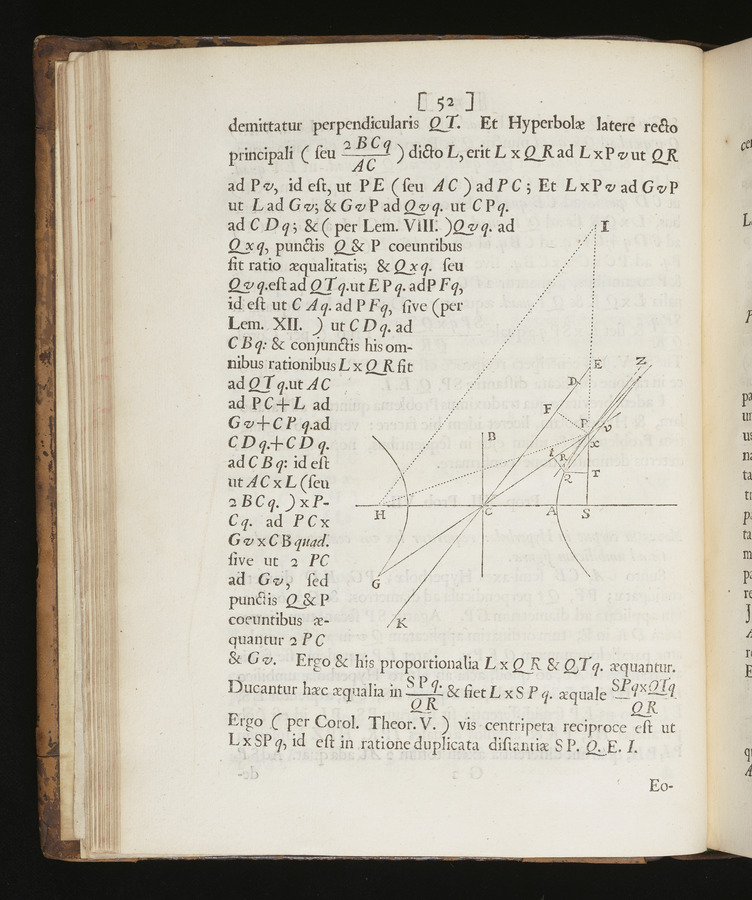 [ 52 ]
demittatur perpendicularis QT. Et Hyperbolæ latere recto
principali ( seu 2BCq / AC ) dicto L, erit L x QR ad L x Pv ut QR
ad Pv, id est, ut PE ( seu AC ) ad PC ; Et L x Pv ad GvP
ut L ad Gv; & GvP ad Qvq. ut CPq.
ad CDq; & ( per Lem. VIII. ) Qvq. ad
Qxq, punctis Q & P coeuntibus
fit ratio æqualitatis; & Qxq. seu
Qvq. est ad QTq. ut EPq. ad PFq,
id est ut CAq. ad PFq, sive (per
Lem. XII. ) ut CDq. ad
CBq: & conjunctis his om-
nibus rationibus L x QR fit
ad QTq. ut AC
ad PC + L ad
Gv + CPq. ad
CDq. + CDq.
ad CBq: id est
ut AC x L (seu
2BCq. ) x P-
Cq. ad PC x
Gv x CB quad.
sive ut 2 PC
ad Gv, sed
punctis Q & P
coeuntibus æ-
quantur 2 PC
& Gv. Ergo & his proportionalia L x QR & QTq. æquantur.
Ducantur hæc æqualia in SPq. / QR & fiet L x SPq. æquale SPq x QTq / QR
Ergo ( per Corol. Theor. V. ) vis centripeta reciproce est ut
L x SPq, id est in ratione duplicata distantiæ SP. Q. E. I.
Eo-
I
E
Z
D
F
P
v
B
x
I
R
Q
T
H
C
A
S
G
K